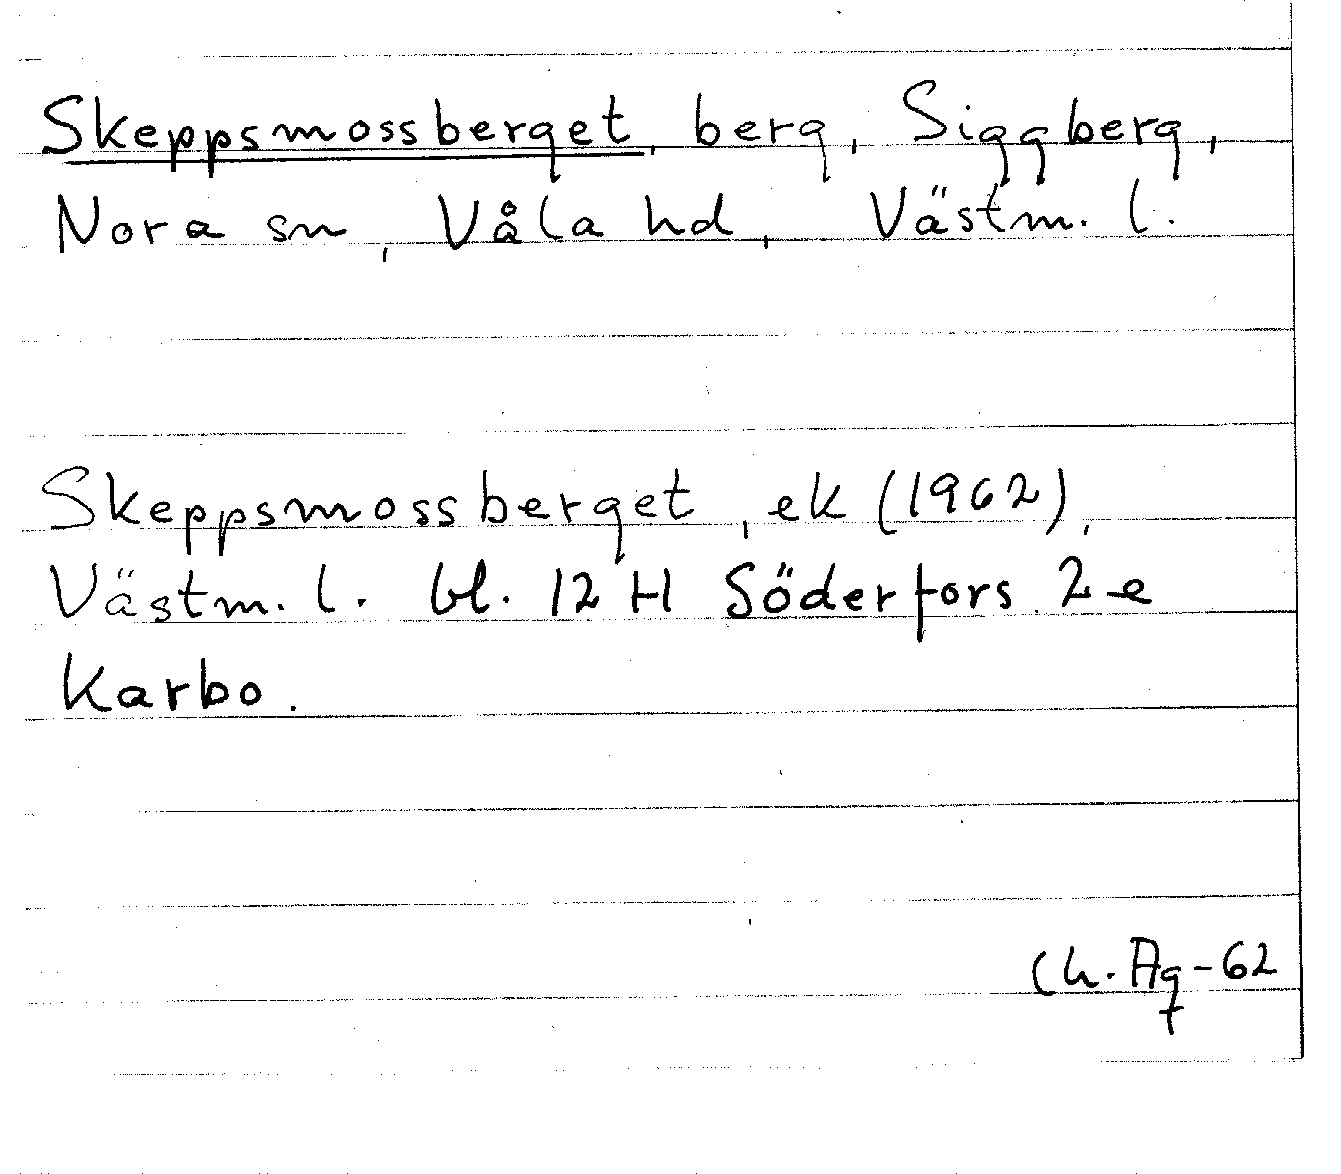 Skeppsmossberget, berg, Siggberg,
Nora sn, Våla hd, Västm. l.
Skeppsmossberget, ek (1962),
Västm. l. bl. 12 H Söderfors 2 e
Karbo.
Ch. Ag-62